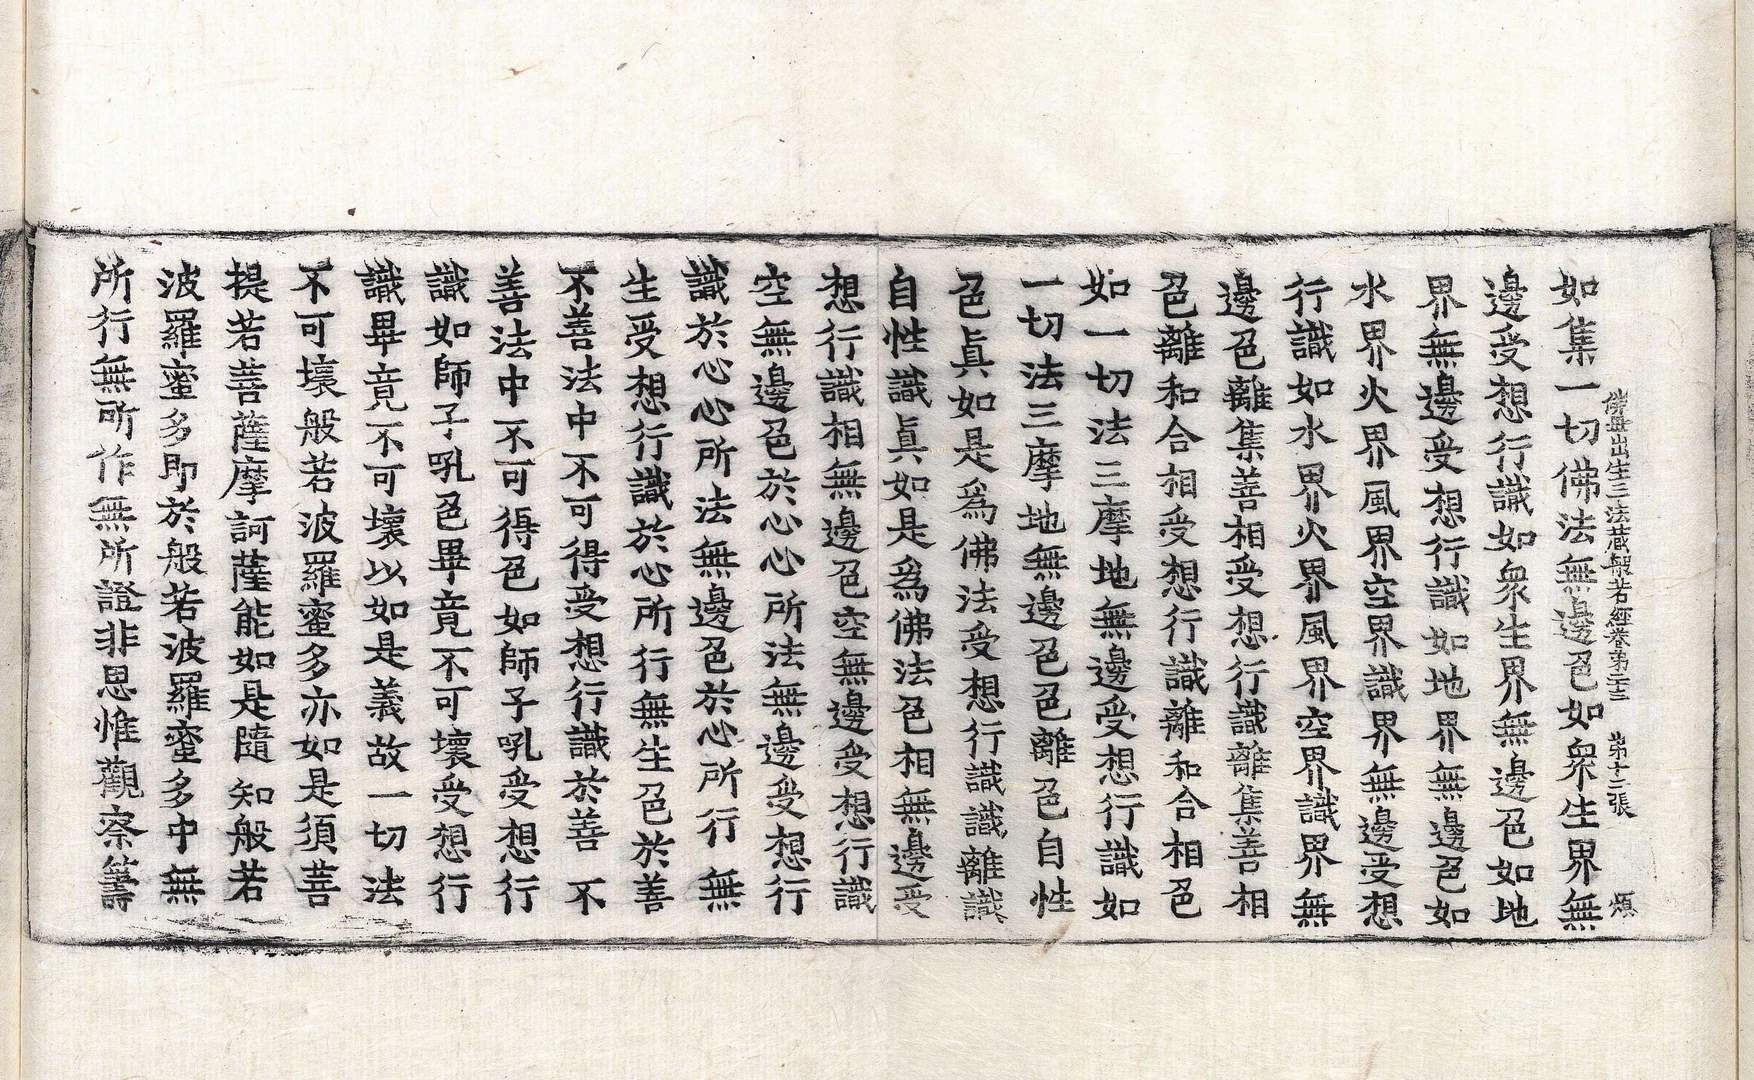 佛母出生三法藏般若經卷第二十三 第十二張 煩
如集一切佛法無邊色如衆生界無
邊受想行識如衆生界無邊色如地
界無邊受想行識如地界無邊色如
水界火界風界空界識界無邊受想
行識如水界火界風界空界識界無
邊色離集善相受想行識離集善相
色離和合相受想行識離和合相色
如一切法三摩地無邊受想行識如
一切法三摩地無邊色色離色自性
色眞如是爲佛法受想行識識離識
自性識眞如是爲佛法色相無邊受
想行識相無邊色空無邊受想行識
空無邊色於心心所法無邊受想行
識於心心所法無邊色於心所行無
生受想行識於心所行無生色於善
不善法中不可得受想行識於善不
善法中不可得色如師子吼受想行
識如師子吼色畢竟不可壞受想行
識畢竟不可壞以如是義故一切法
不可壞般若波羅蜜多亦如是須菩
提若菩薩摩訶薩能如是隨知般若
波羅蜜多即於般若波羅蜜多中無
所行無所作無所證非思惟觀察籌